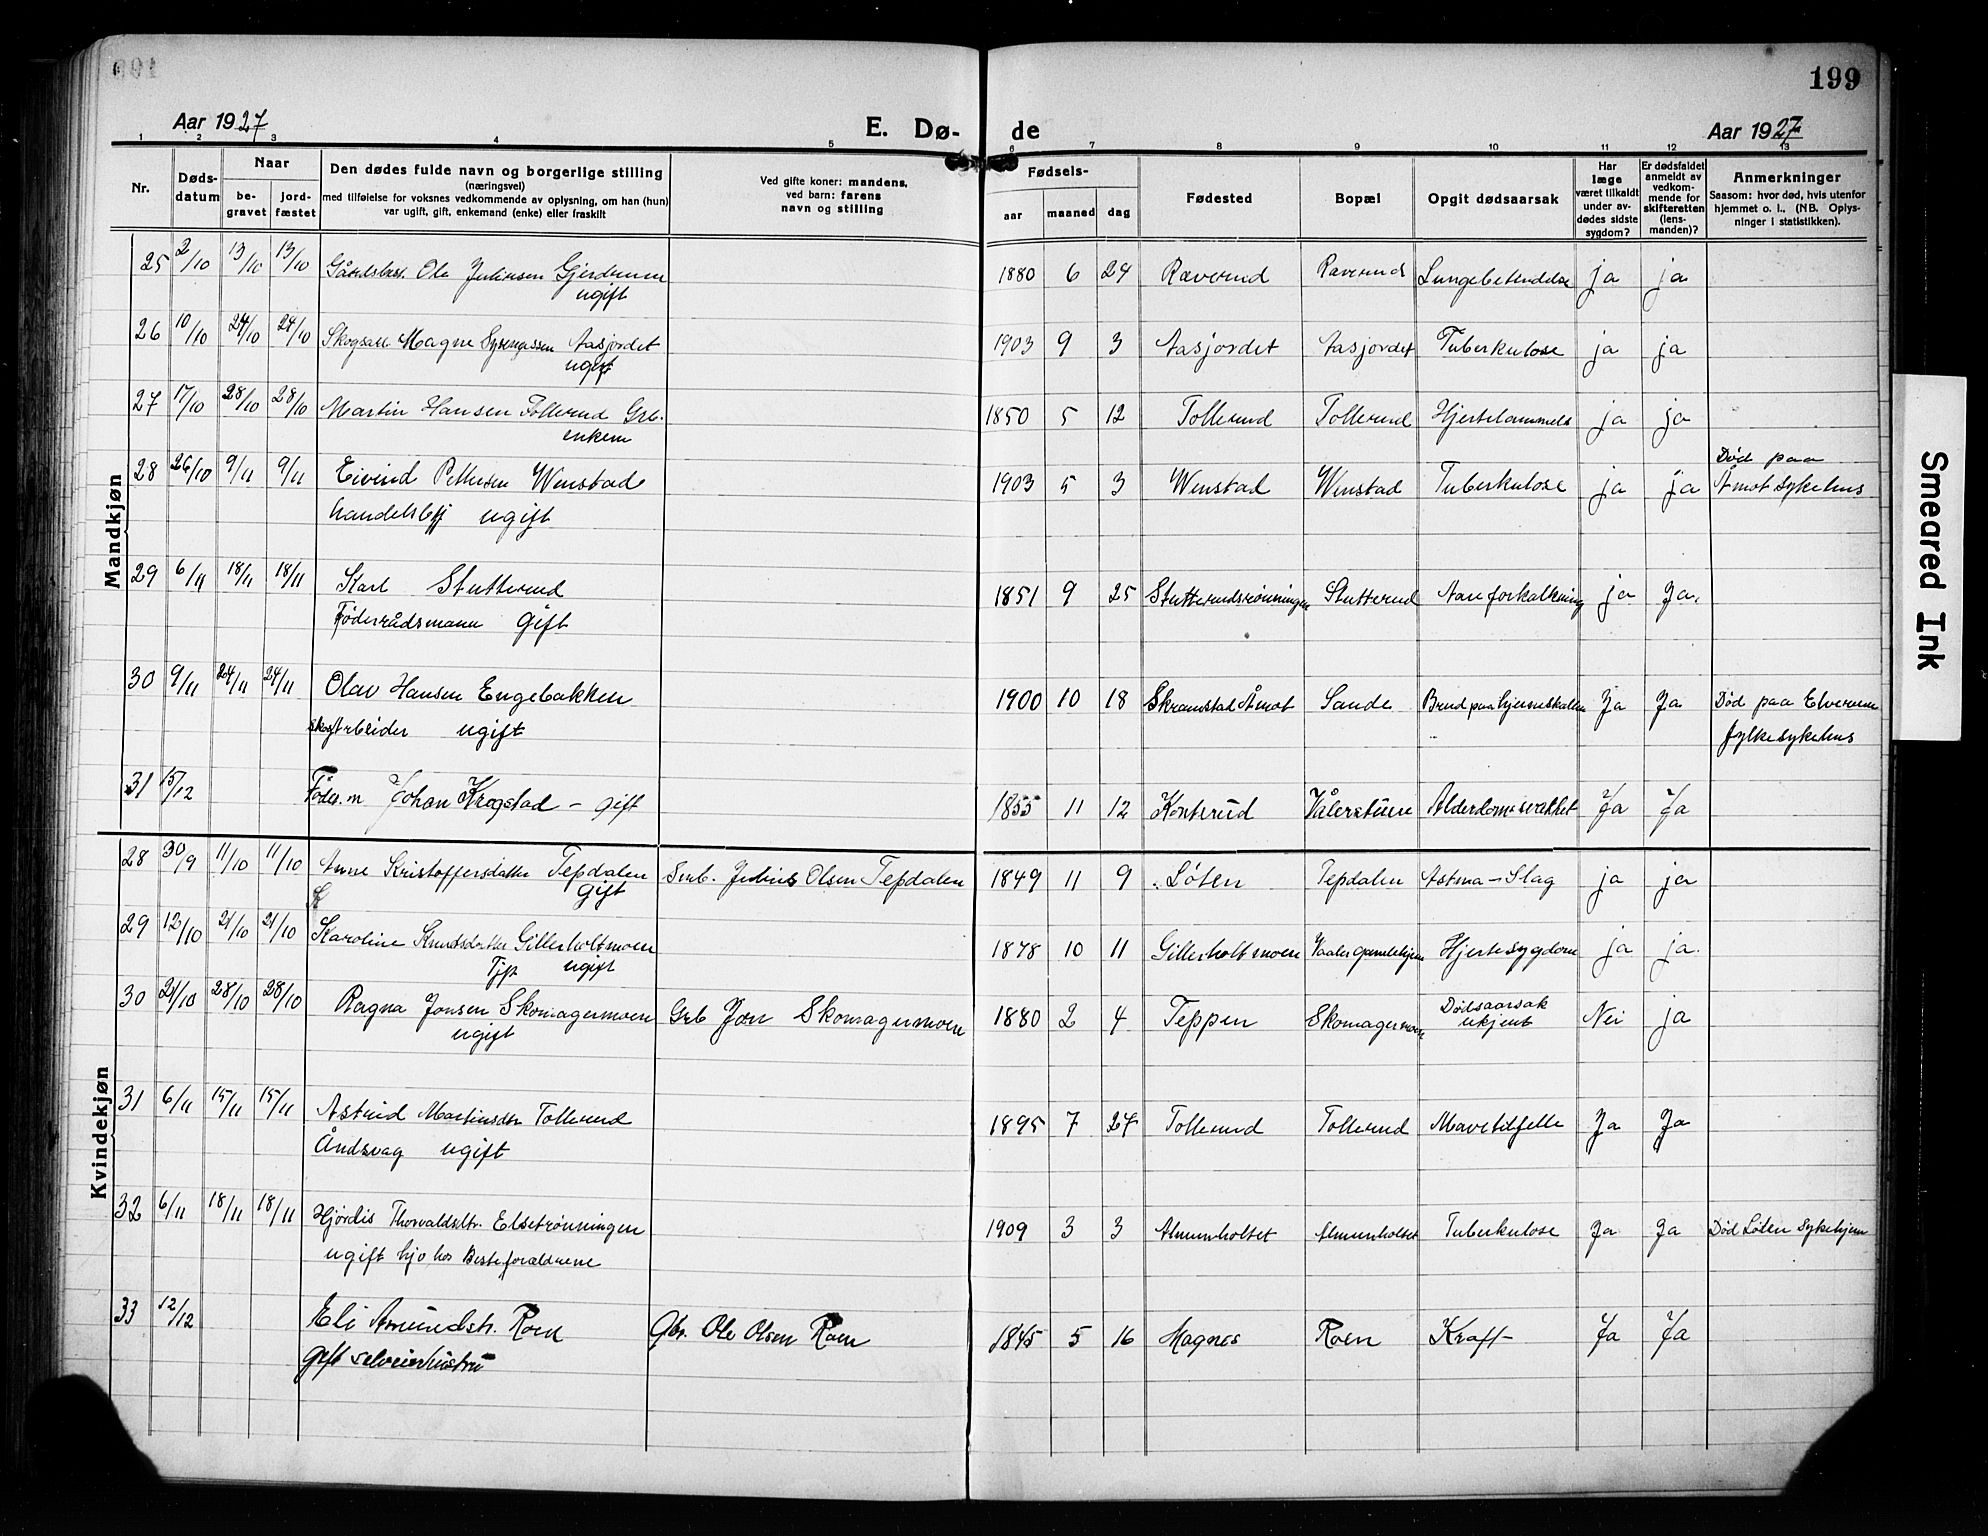 199
Aar 1927
E. Dø-
de
Aar 1927
1 2 3 4 5 6 7 8 9 10 11 12 13
Nr.
Døds-
datum
Naar
be-
gravet
jord-
fæstet
Den dødes fulde navn og borgerlige stilling
(næringsvei)
med tilføielse for voksnes vedkommende av oplysning, om han (hun)
var ugift, gift, enkemand (enke) eller fraskilt
Ved gifte koner: mandens,
ved barn: farens
navn og stilling
Fødsels-
aar
maaned
dag
Fødested
Bopæl
Opgit dødsaarsak
Har
læge
været tilkaldt
under av-
dødes sidste
sygdom?
Er dødsfaldet
anmeldt av
vedkom-
mende for
skifteretten
(lens-
manden)?
Anmerkninger
Saasom: hvor død, hvis utenfor
hjemmet o. l., (NB. Oplys-
ninger i statistikken).
Mandkjøn
25 2/10 13/10 13/10 Gårdsbest. Ole Juliusen Gjerdemoen 1880 6 24 Ræverud Ræverud Lungebetendelse ja ja
ugift
26 10/10 24/10 24/10 Skogsarb Magne Aasjordet 1903 9 3 Aasjordet Aasjordet Tuberkulose ja ja
ugift
27 17/10 28/10 28/10 Martin Hansen Tollerud Grb. 1850 5 12 Tollerud Tollerud Hjertelammelse ja ja
enkem
28 26/10 9/11 9/11 Eivind Pettersen Wenstad 1903 5 3 Wenstad Wenstad Tuberkulose ja ja Død paa
Åmot sykehus
handelsbetj ugift
29 6/11 18/11 18/11 Karl Stutterud 1851 9 25 Stutterudsrønningen Stutterud Aareforkalkning ja Ja.
Føderådsmann gift
30 9/11 24/11 24/11 Olav Hansen Engebakken 1900 10 18 Skramstad Åmot Sande Brud paa hjerneskallen Ja Ja Død paa Elverum
fylkesykehus
skogsarbeider ugift
31 15/12 Føder.m Johan Krogstad - gift 1855 11 12 Konterud Vålerstuen Alderdomssvakhet Ja Ja
Kvindekjøn
28 30/9 11/10 11/10 Anne Kristoffersdatter Tepdalen Smb. Julius Olsen Tepdalen 1849 11 9 Løten Tepdalen Astma - Slag ja ja
gift
29 12/10 21/10 21/10 Karoline Knudsdatter Gillerholtmoen 1878 10 11 Gillerholtmoen Vaaler gamlehjem Hjertesygdom ja ja.
Tjp ugift
30 21/10 28/10 28/10 Ragna Jonsen Skomagermoen Grb Jon Skomagermoen 1880 2 4 Teppen Skomagermoen Dødsaarsak
ukjent Nei ja
ugift
31 6/11 15/11 15/11 Astrid Martinsdtr Tollerud 1895 7 27 Tollerud Tollerud Mavetilfelle Ja Ja
Åndsvag ugift
32 6/11 18/11 18/11 Hjørdis Thorvaldsdtr. Elsetrønningen 1909 3 3 Almenholtet Almenholtet Tuberkulose Ja Ja Død Løten Sykehjem
ugift hjo hos Besteforældrene
33 12/12 Eli Amundstr. Roen Gbr. Ole Olsen Roen 1845 5 16 Magnes Roen Kræft Ja Ja
gift selveierhustru
Smeared Ink